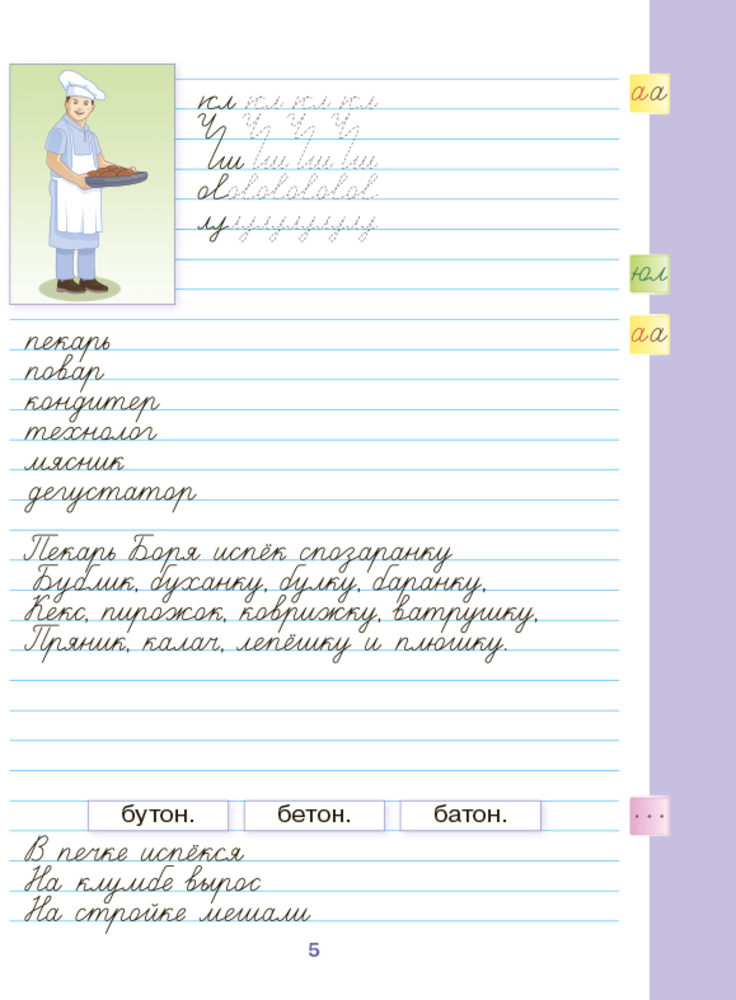 аа
юл
аа
пекарь
повар
кондитер
технолог
мясник
дегустатор
Пекарь Боря испёк спозаранку
Бублик, буханку, булку, баранку,
Кекс, пирожок, коврижку, ватрушку,
Пряник, калач, лепёшку и плюшку.
бутон. бетон. батон.
...
В печке испёкся
На клумбе вырос
На стройке мешали
5